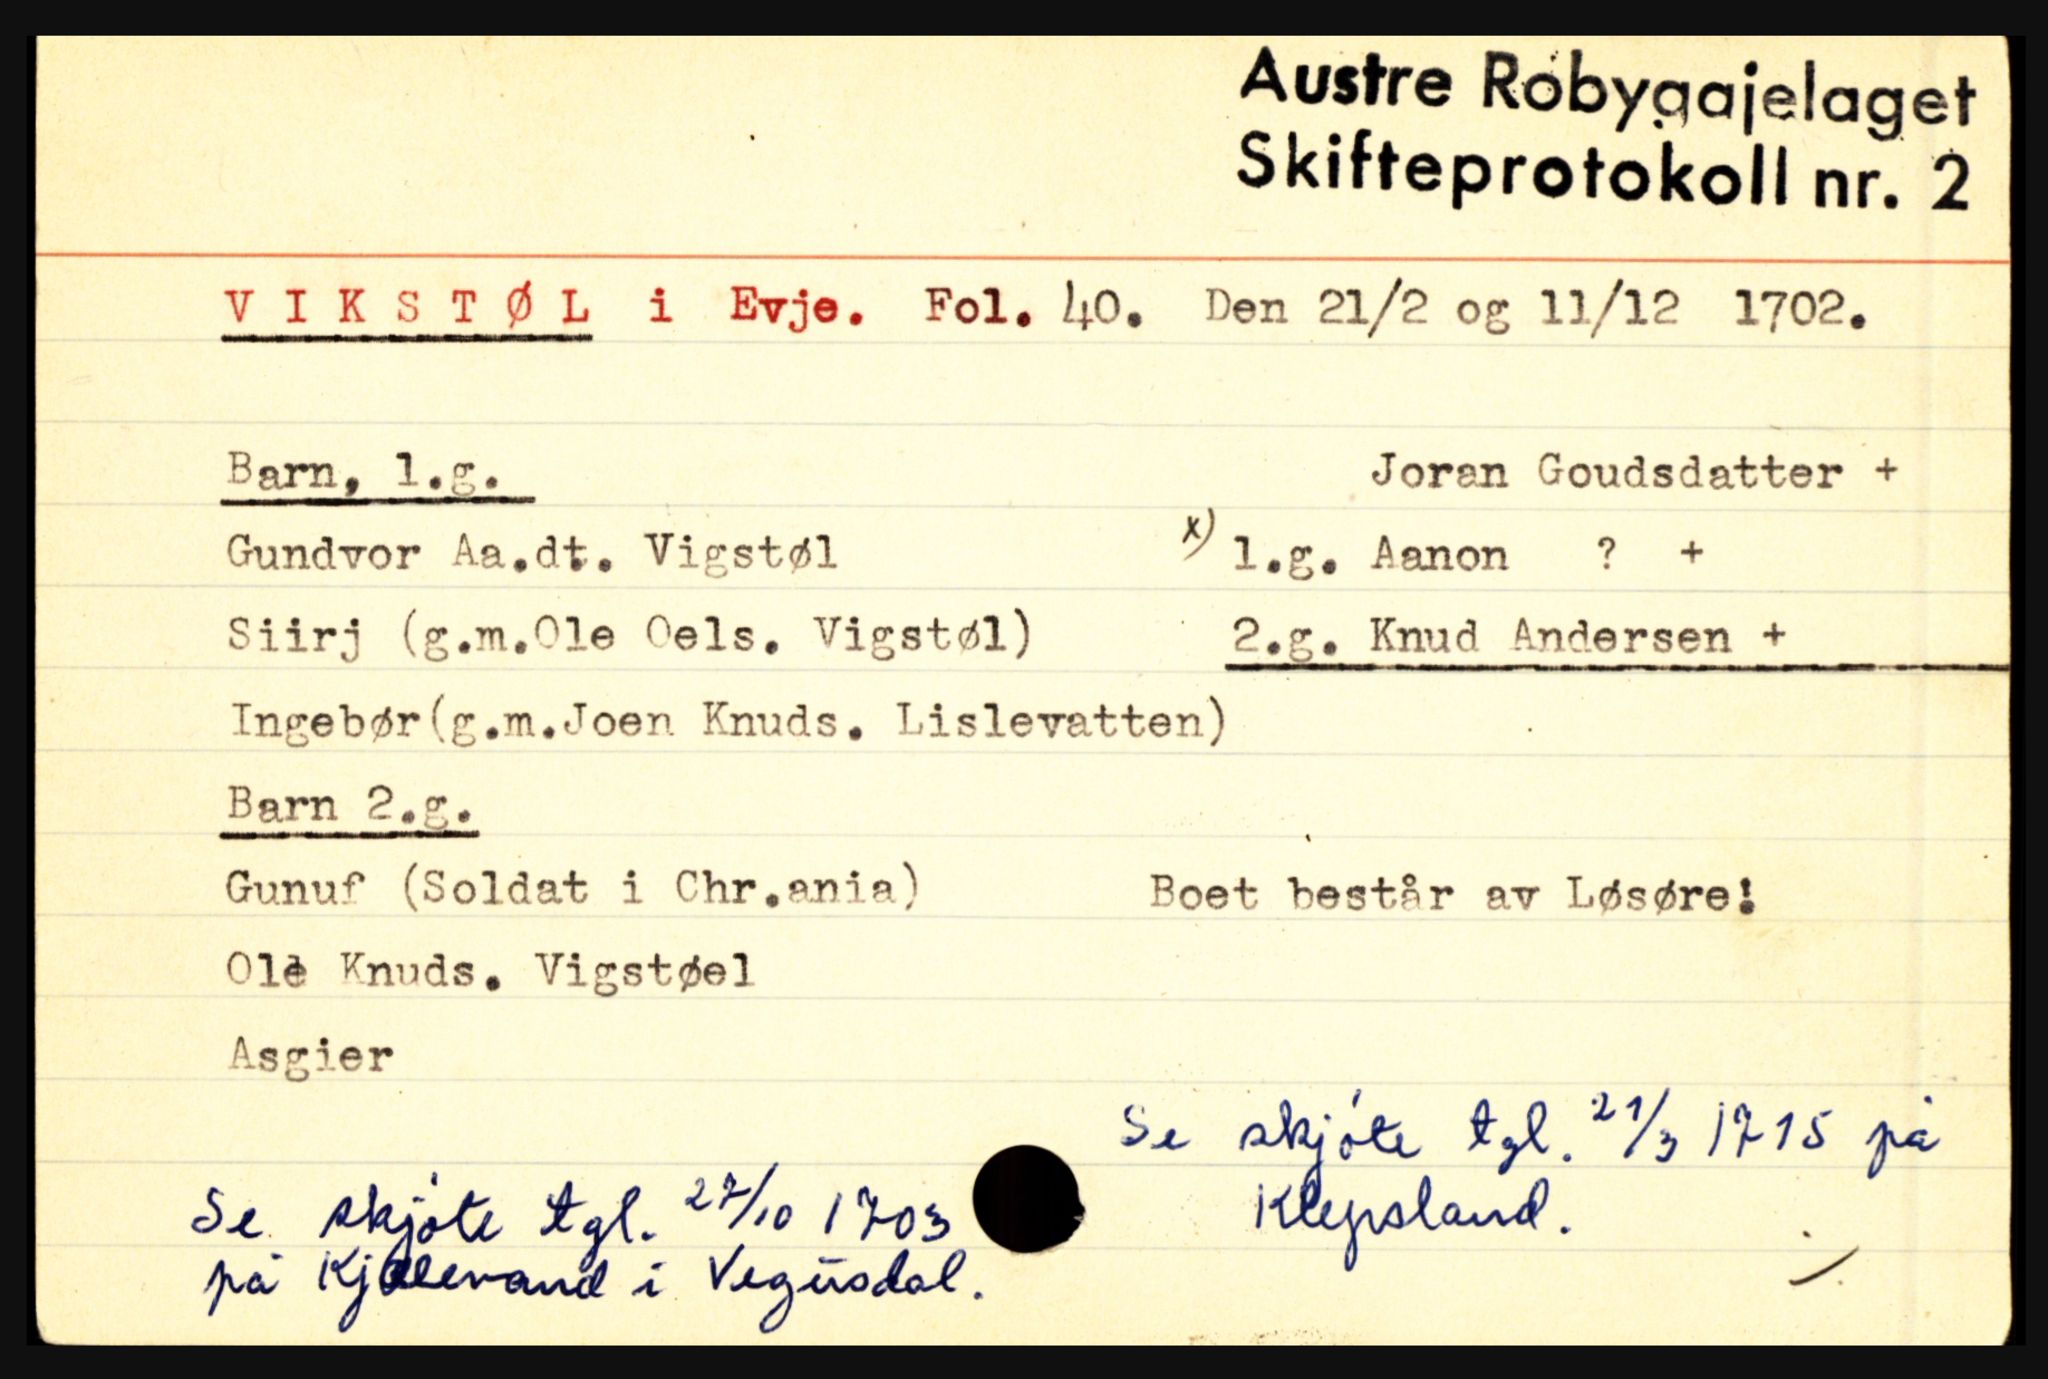 Austre Robygajelaget
Skifteprotokoll nr. 2
V I K S T Ø L i Evje. Fol. 40. Den 21/2 og 11/12 1702.
Barn, 1.g.
Joran Goudsdatter +
Gundvor Aa.dt. Vigstøl
x) 1.g. Aanon ? +
Siirj (g.m.Ole Oels. Vigstøl)
2.g. Knud Andersen +
Ingebør(g.m.Joen Knuds. Lislevatten)
Barn 2.g.
Gunuf (Soldat i Chr.ania)
Boet består av Løsøre!
Ole Knuds. Vigstøel
Asgier
Se skjóte tgl. 21/3 1715 på
Klepsland.
Se skjóte tgl. 27/10 1703
på i Vegusdal.